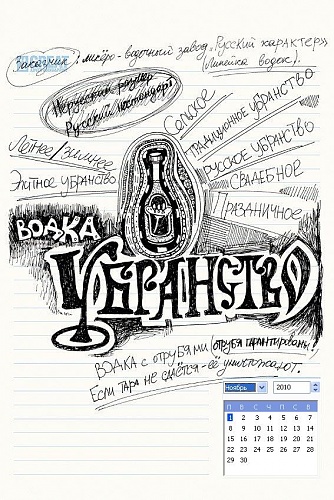 Заказчик: ликёро-водочный завод „Русский характер"
(Линейка водок).
Русский
Сельское
Традиционное убранство
Летнее/зимнее
Русское убранство
Элитное убранство
Свадебное
Праздничное
Водка
Убранство
Водка с отрубями (отрубя гарантированы!)
Если тара не сдаётся - её уничтожают.
Ноябрь 2010
П В С Ч П С В
1 2 3 4 5 6 7
8 9 10 11 12 13 14
15 16 17 18 19 20 21
22 23 24 25 26 27 28
29 30